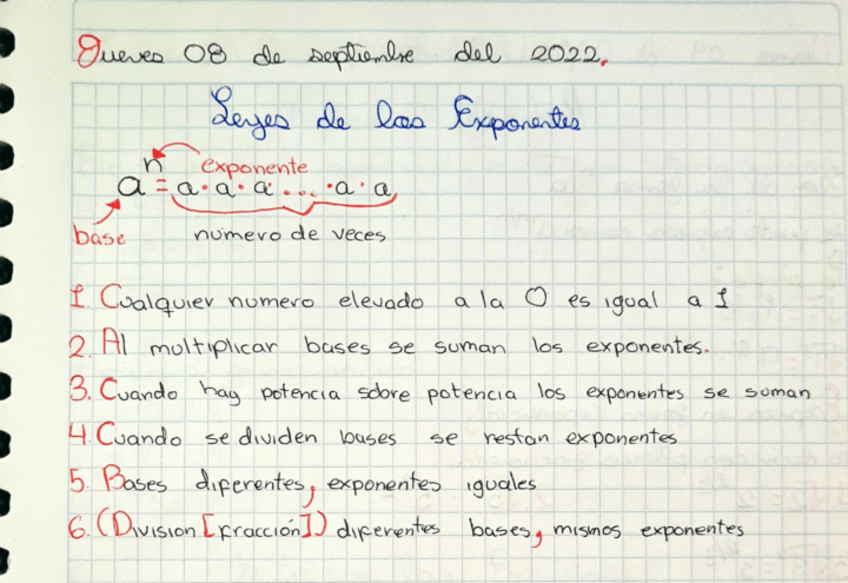 Jueves 08 de septiembre del 2022.
Leyes de los Exponentes
n exponente
a = a · a · a · ... · a · a
base numero de veces
1. Cualquier numero elevado a la 0 es igual a 1
2. Al multiplicar bases se suman los exponentes.
3. Cuando hay potencia sobre potencia los exponentes se suman
4. Cuando se dividen bases se restan exponentes
5. Bases diferentes, exponentes iguales
6. (Division [fracción]) diferentes bases, mismos exponentes